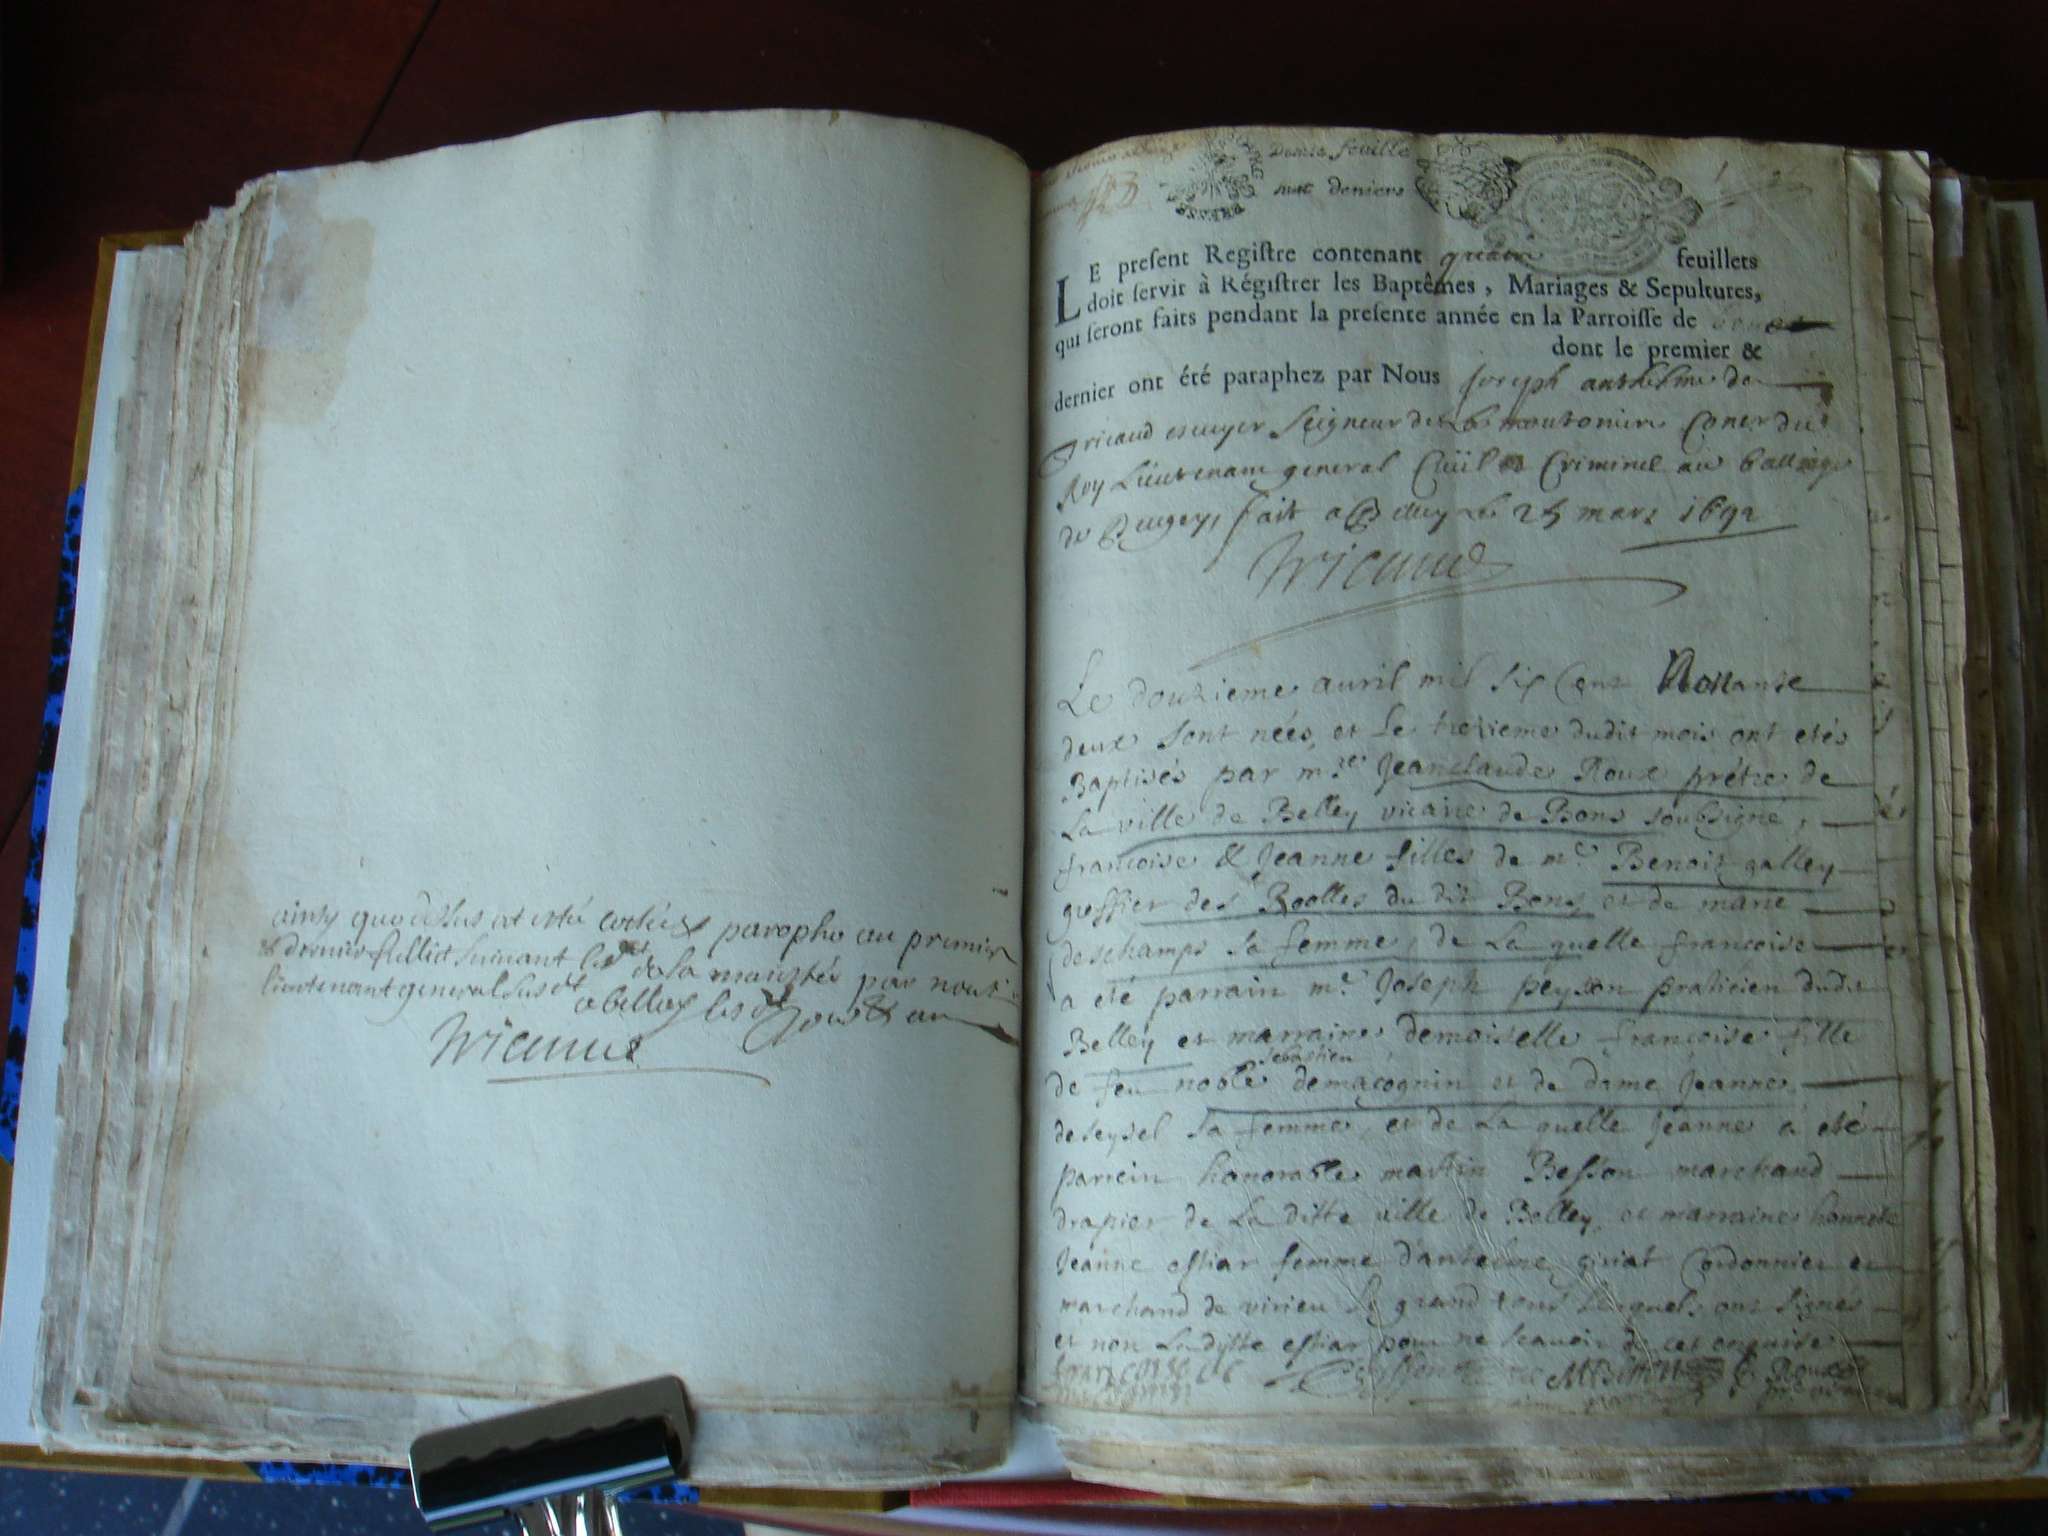 ainsy que dessus at esté cotté & paraphe au premier
& dernier feuillet suivant de sa maiesté par nous
lieutenant general susdt a belley les dt jour & an
demie feuille
huit deniers
LE present Registre contenant feuillets
doit servir à Régistrer les Baptêmes, Mariages & Sepultures,
qui seront faits pendant la presente année en la Parroisse de
dont le premier &
dernier ont été paraphez par Nous Joseph anthelme de
escuyer Seigneur de Coner du
Roy Lieutenant general Ciuil et Criminel au balliage
de Bugey, fait a Belley le 25 mars 1692
Le douzieme auril mil six Cent Nonante
deux sont nées, et le trezieme dudit mois ont etés
Baptisés par mre Jeanclaude Roux prétre de
La ville de Belley vicaire de Bons soubsigné,
francoise & Jeanne filles de me Benoit galley
greffier des Roolles du dit Bons, et de marie
deschamps sa femme, de La quelle francoise
a eté parrain me Joseph peysson praticien dudit
Belley et marraine demoiselle francoise fille
de feu noble sebastien demacognin et de dame Jeanne
deseysel sa femme, et de La quelle Jeanne a eté
parrein honorable martin Besson marchand
drapier de La ditte ville de Belley, et marraine honnete
Jeanne estiar femme d'antelme giriat Cordonnier et
marchand de virieu Le grand tous Lesquels ont signés
et non La ditte estiar pour ne scauoir de cet enquise
francoise de